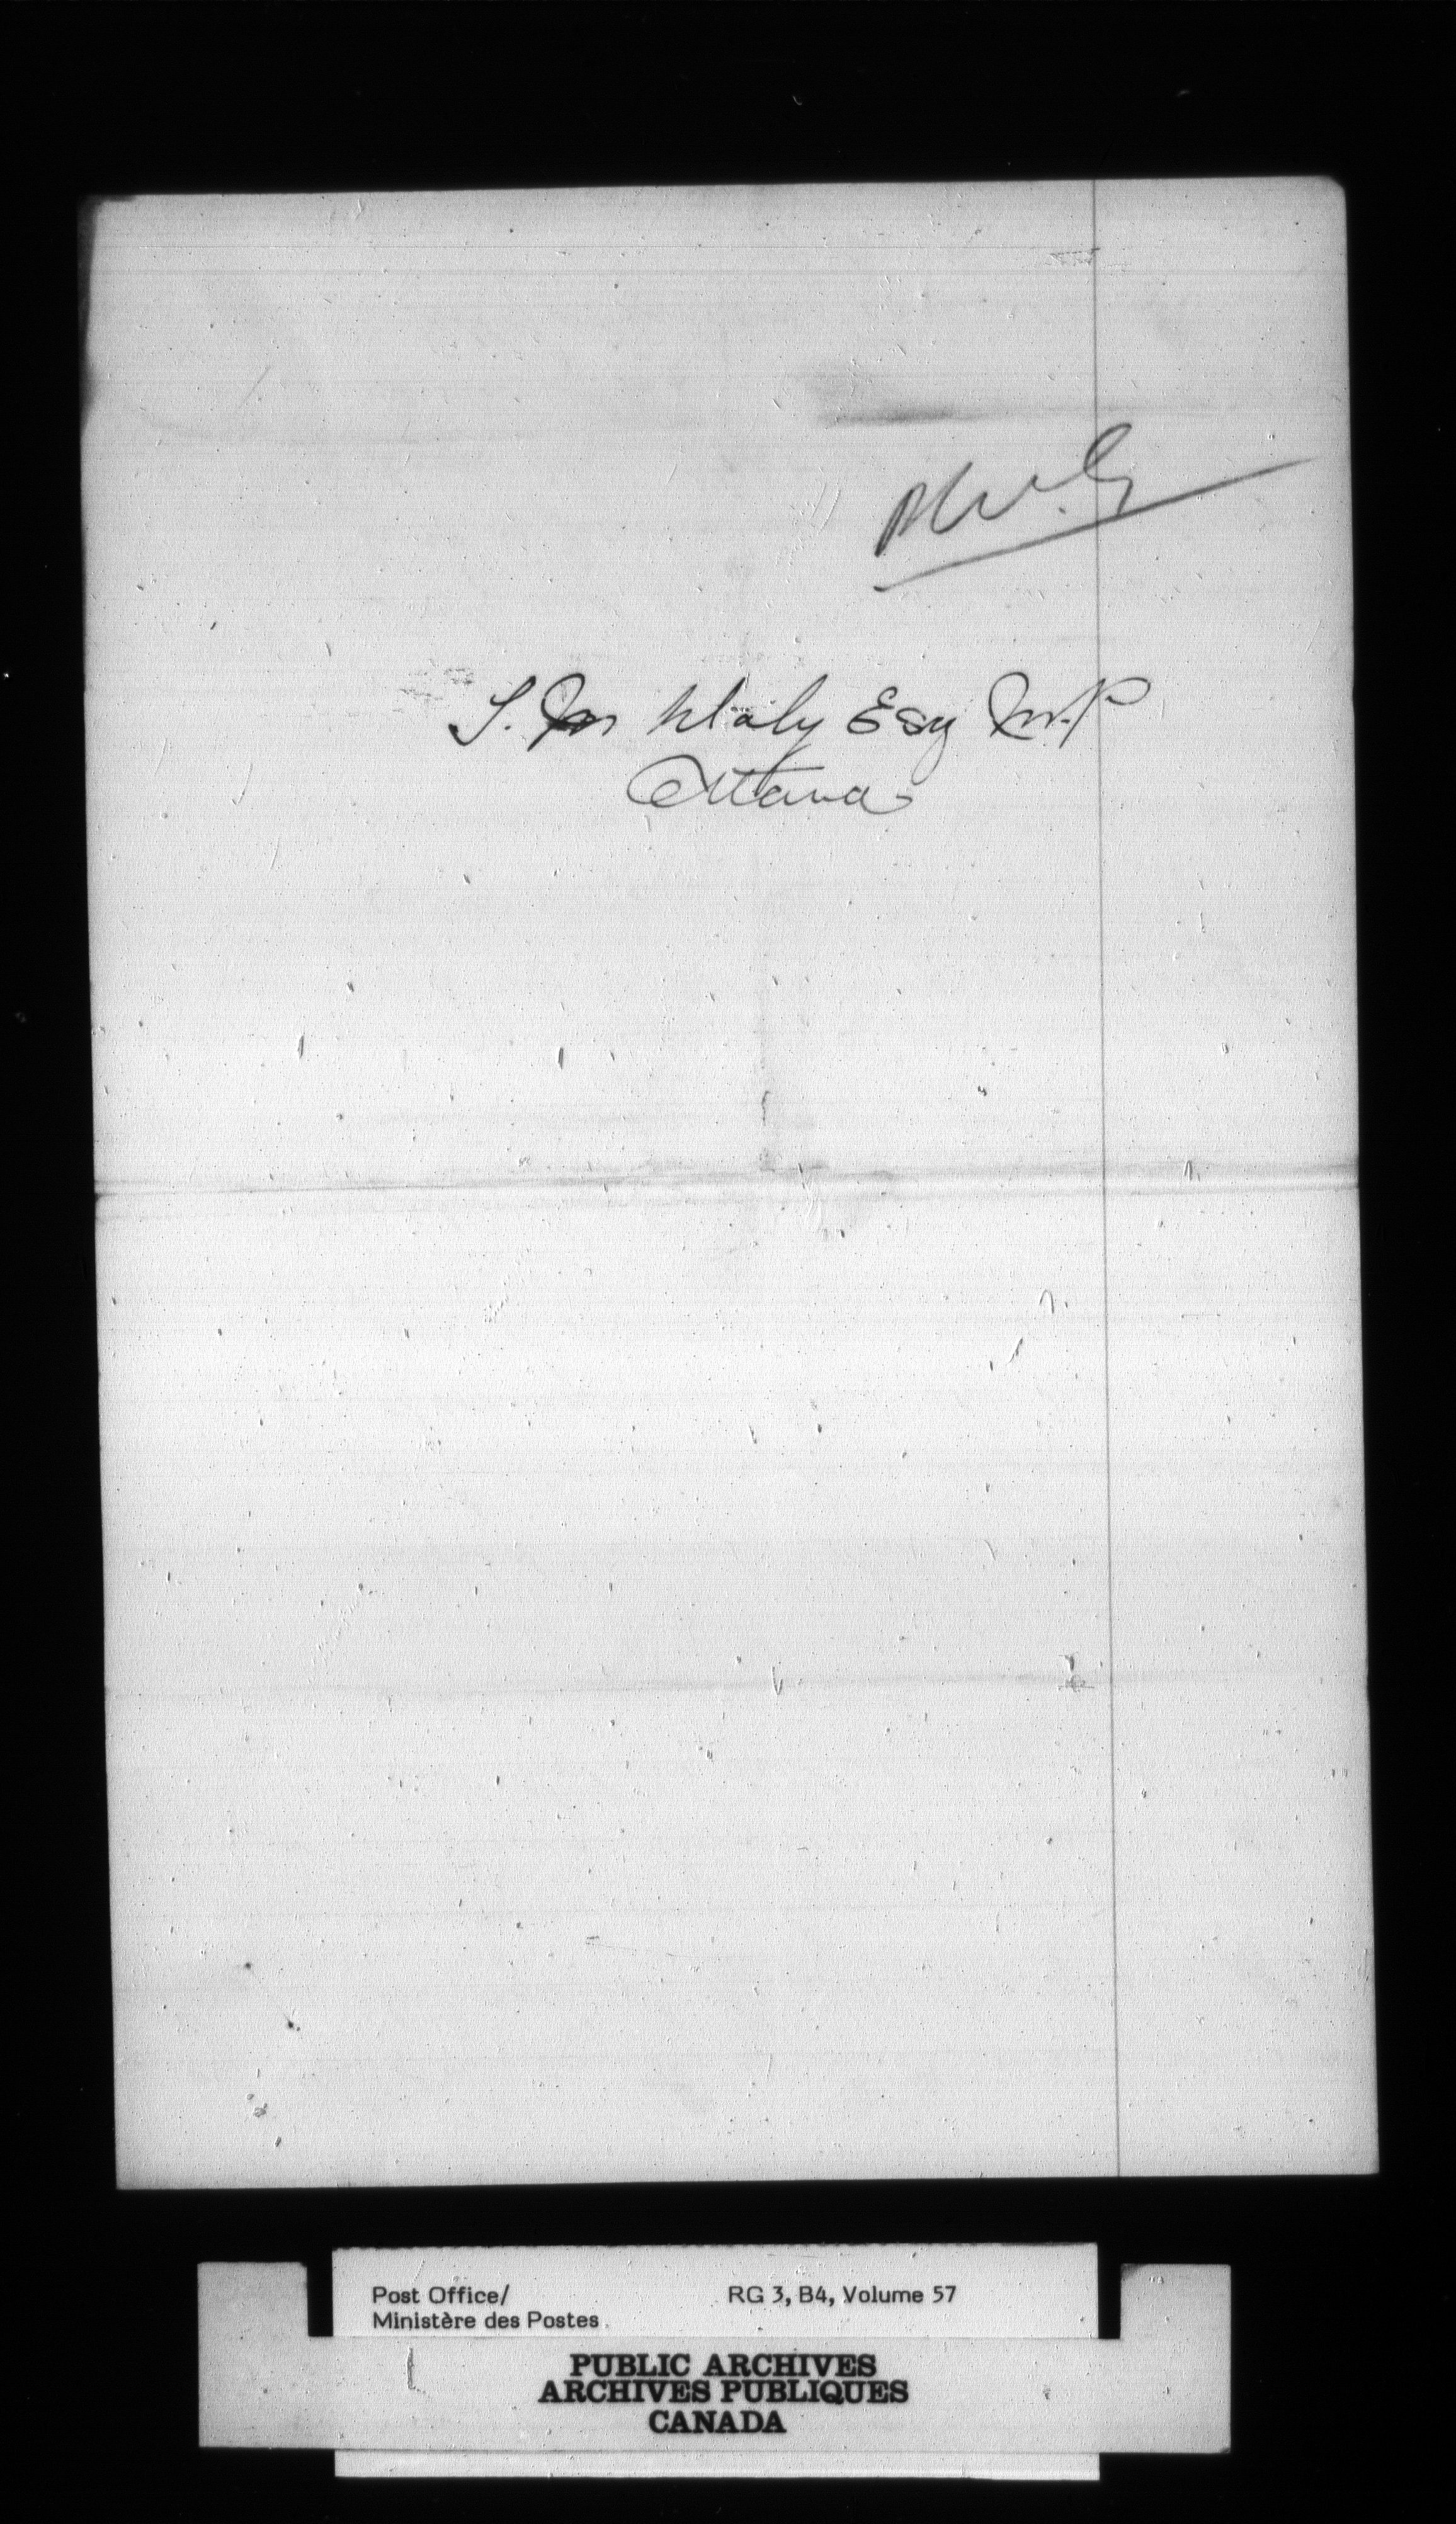 Esq M.P
Ottawa
Post Office/ RG 3, B4, Volume 57
Ministère des Postes
PUBLIC ARCHIVES
ARCHIVES PUBLIQUES
CANADA